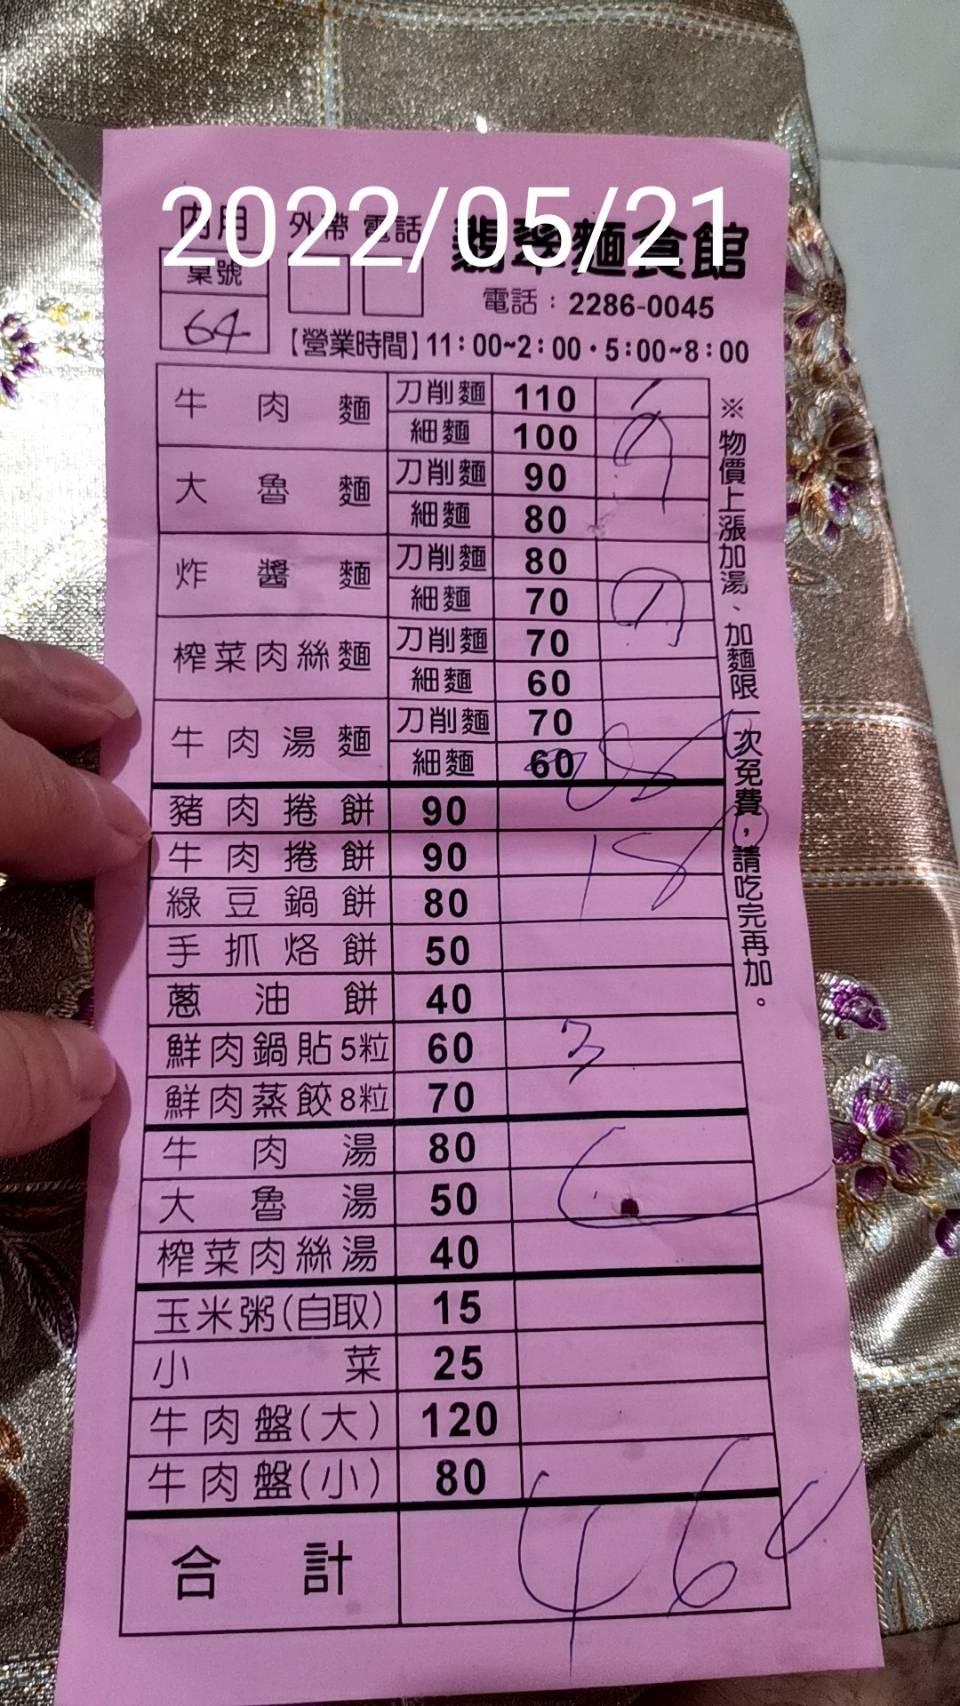 2022/05/21
內用 外帶 電話 翡翠麵食館
桌號
64
電話：2286-0045
【營業時間】11：00~2：00・5：00~8：00
牛肉麵 刀削麵 110
細麵 100
大魯麵 刀削麵 90
細麵 80
炸醬麵 刀削麵 80
細麵 70
榨菜肉絲麵 刀削麵 70
細麵 60
牛肉湯麵 刀削麵 70
細麵 60
豬肉捲餅 90
牛肉捲餅 90
綠豆鍋餅 80
手抓烙餅 50
蔥油餅 40
鮮肉鍋貼5粒 60
鮮肉蒸餃8粒 70
牛肉湯 80
大魯湯 50
榨菜肉絲湯 40
玉米粥(自取) 15
小菜 25
牛肉盤(大) 120
牛肉盤(小) 80
合計 460
※物價上漲加湯、加麵限一次免費，請吃完再加。